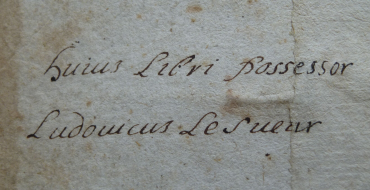 huius Libri possessor
Ludouicus Le Sueur